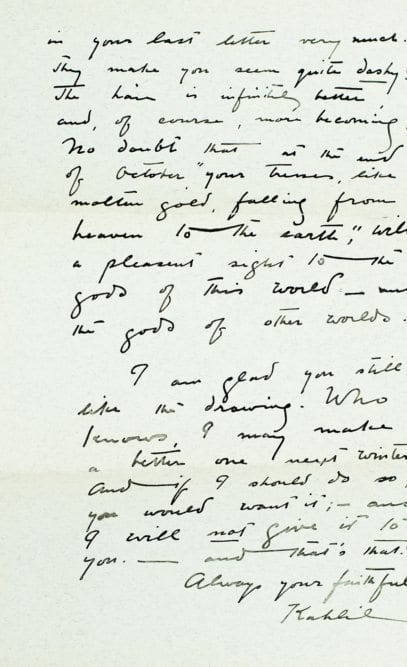 in your last letter very much.
They make you seem quite dashy.
The hair is infinitely better,
and, of course, more becoming.
No doubt that at the end
of October "your tresses, like
molten gold, falling from
heaven to the earth," will
a pleasent sight to the
gods of this world —
the gods of other worlds.
I am glad you still
like the drawing. Who
knows, I may make
a better one next winter
And if I should do so,
you would want it; — and
I will not give it to
you. — and that's that.
Always your faithful
Kahlil